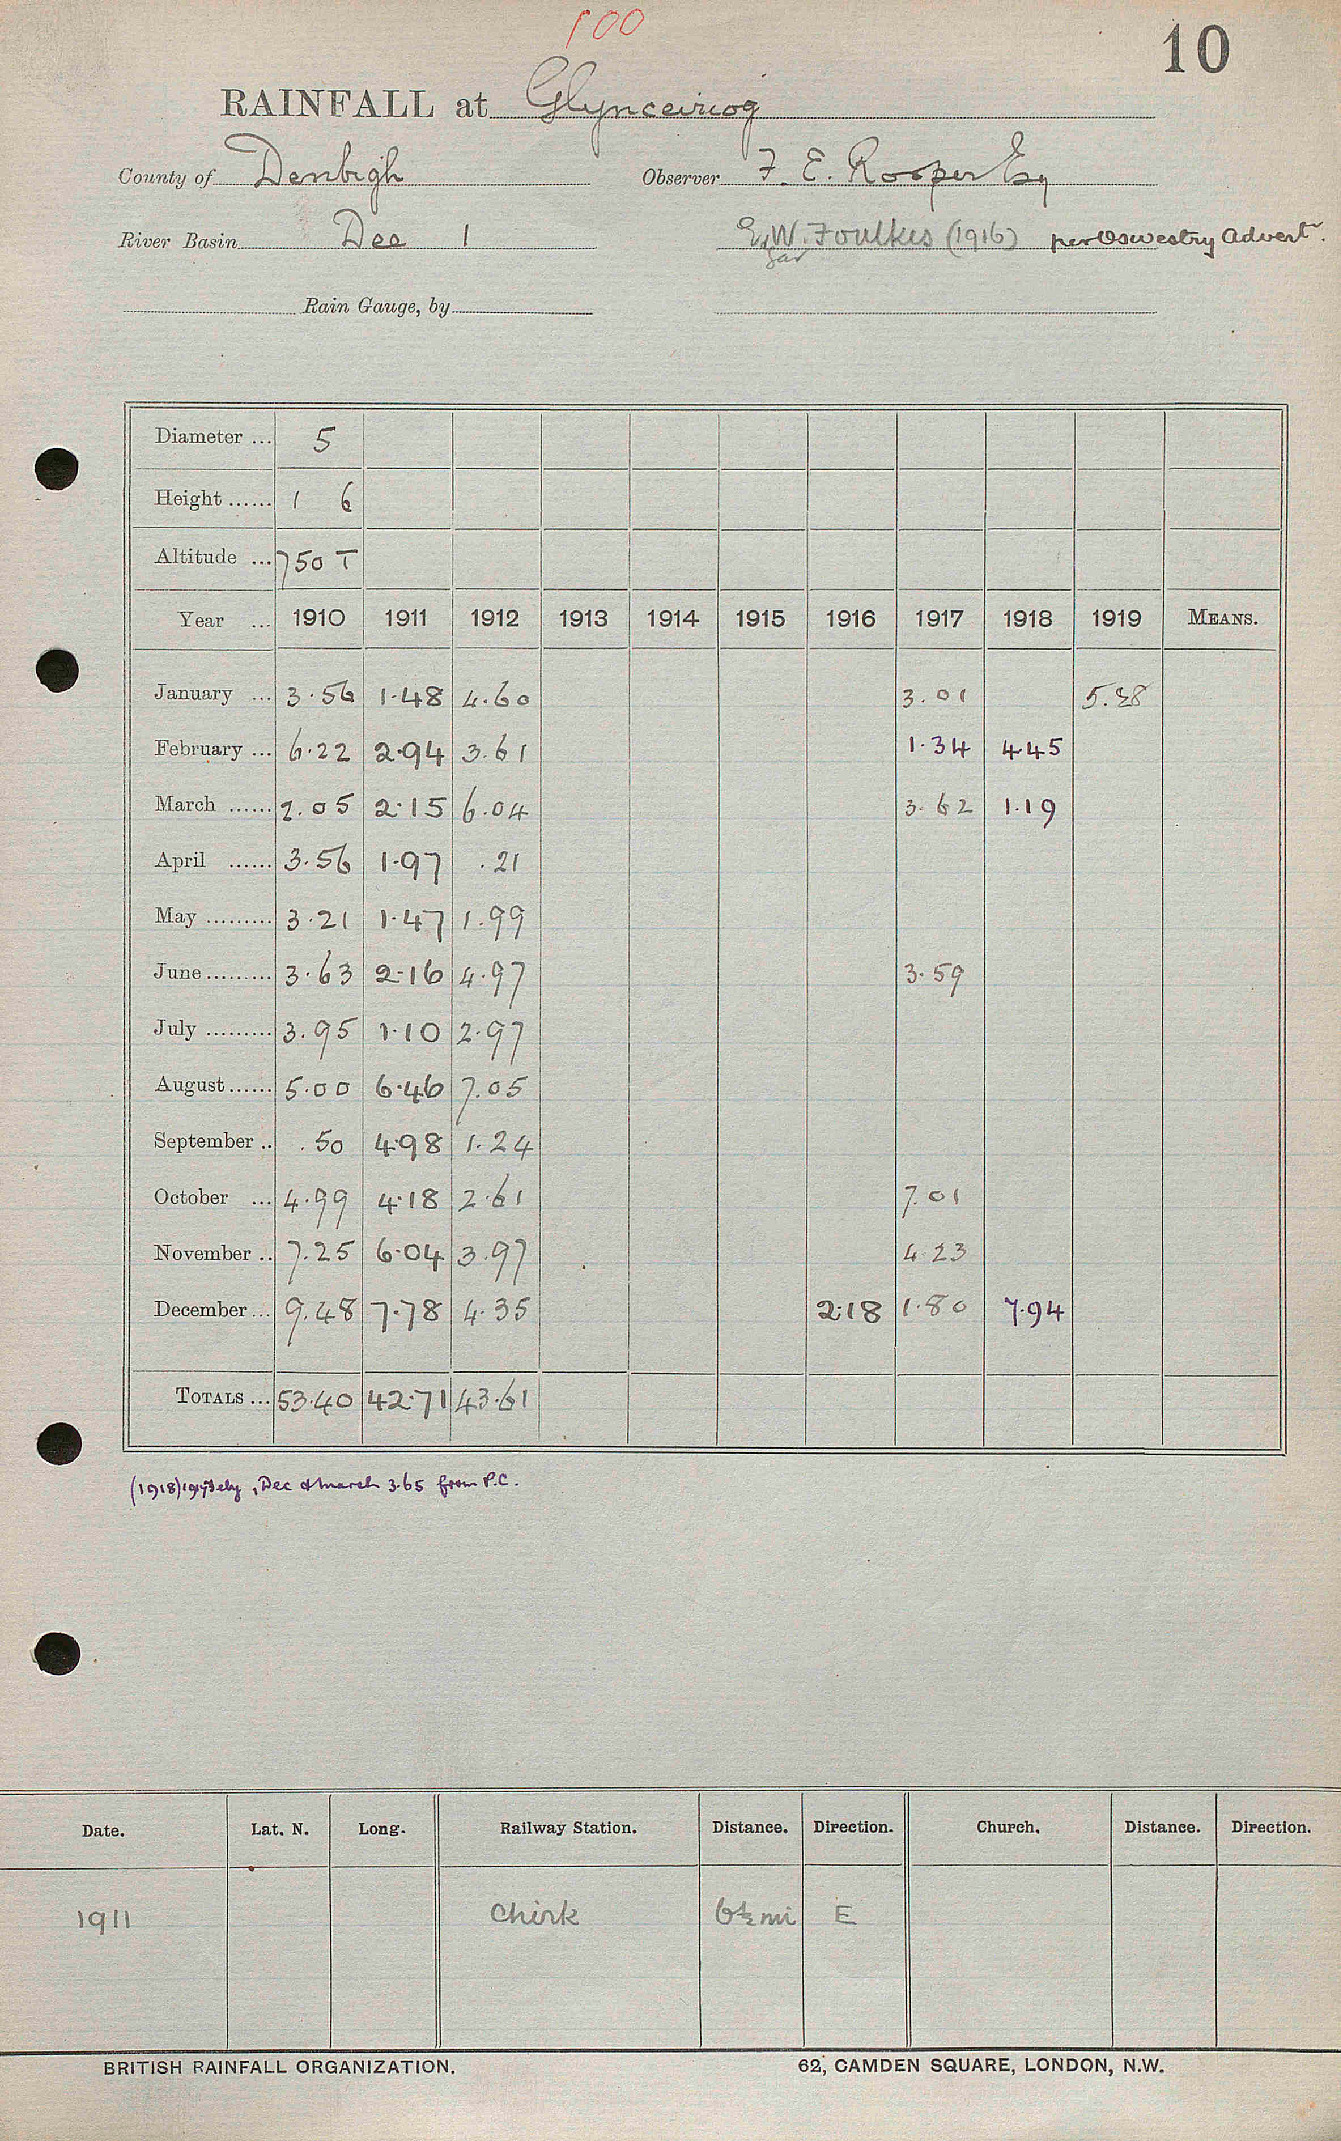 100
10
RAINFALL at Glynceiriog
County of Denbigh Observer F. E. Rooper Esq
River Basin Dee 1 W. Foulkes (1916) per Oswestry Advert.
Rain Gauge, by
Diameter ... 5
Height ...... 1 6
Altitude ... 750 T
Year ... 1910 1911 1912 1913 1914 1915 1916 1917 1918 1919 MEANS.
January ... 3.56 1.48 4.60 3.01
February ... 6.22 2.94 3.61 1.34 4.45
March ...... 2.05 2.15 6.04 3.62 1.19
April ...... 3.56 1.97 .21
May ......... 3.21 1.47 1.99
June ......... 3.63 2.16 4.97 3.59
July ......... 3.95 1.10 2.97
August ...... 5.00 6.46 7.05
September .. .50 4.98 1.24
October ... 4.99 4.18 2.61 7.01
November .. 7.25 6.04 3.97 4.23
December ... 9.48 7.78 4.35 2.18 1.80 7.94
TOTALS ... 53.40 42.71 43.61
(1918) Dec & March 3.65 from P.C.
Date. Lat. N. Long. Railway Station. Distance. Direction. Church. Distance. Direction.
1911 Chirk 6½ mi E
BRITISH RAINFALL ORGANIZATION. 62, CAMDEN SQUARE, LONDON, N.W.